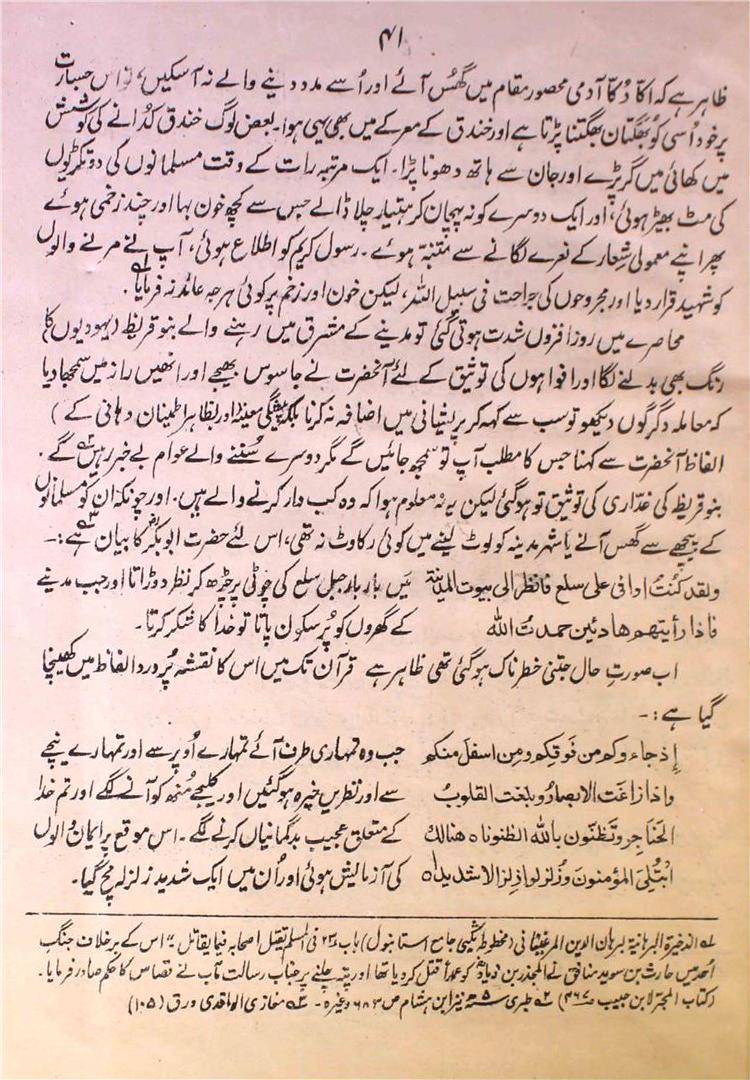 ۴۱
ظاہر ہے کہ اکّا دُکّا آدمی محصور مقام میں گھُس آئے اور اُسے مدد دینے والے نہ آ سکیں، تو اس جسارت
پر خود اُسی کو بھگتان بھگتنا پڑتا ہے اور خندق کے معرکے میں بھی یہی ہوا۔ بعض لوگ خندق کُدانے کی کوشش
میں کھائی میں گر پڑے اور جان سے ہاتھ دھونا پڑا۔ ایک مرتبہ رات کے وقت مسلمانوں کی دو ٹکڑیوں
کی مٹ بھیڑ ہوئی، اور ایک دوسرے کو نہ پہچان کر ہتیار چلا ڈالے جس سے کچھ خون بہا اور چند زخمی ہوئے
پھر اپنے معمولی شِعار کے نعرے لگانے سے متنبہ ہوئے۔ رسول کریم کو اطلاع ہوئی، آپ نے مرنے والوں
کو شہید قرار دیا اور مجروحوں کی جراحت فی سبیل اللہ، لیکن خون اور زخم پر کوئی ہرجہ عائد نہ فرمایا۱؎۔
محاصرے میں روز افزوں شدت ہوتی گئی تو مدینے کے مشرق میں رہنے والے بنو قریظہ (یہودیوں) کا
رنگ بھی بدلنے لگا اور افواہوں کی توثیق کے لئے آنحضرت نے جاسوس بھیجے اور انھیں راز میں سمجھا دیا
کہ معاملہ دگرگوں دیکھو تو سب سے کہہ کر پریشانی میں اضافہ نہ کرنا بلکہ پیشگی معینہ (اور بظاہر اطمینان دہانی کے)
الفاظ آنحضرت سے کہنا جس کا مطلب آپ تو سمجھ جائیں گے مگر دوسرے سُننے والے عوام بے خبر رہیں گے۲؎۔
بنو قریظہ کی غدّاری کی توثیق تو ہو گئی لیکن یہ نہ معلوم ہوا کہ وہ کب وار کرنے والے ہیں۔ اور چونکہ ان کو مسلمانوں
کے پیچھے سے گھس آنے یا شہر مدینہ کو لوٹ لینے میں کوئی رکاوٹ نہ تھی، اس لئے حضرت ابوبکرؓ کا بیان ہے۳؎:۔
ولقد کُنتُ اوافی علی سلع فانظر الی بیوت المدینة میں بار بار جبل سلع کی چوٹی پر چڑھ کر نظر دوڑاتا اور جب مدینے
فاذا رأیتھم ھادئین حمدتُ اللہ کے گھروں کو پُر سکون پاتا تو خدا کا شکر کرتا۔
اب صورتِ حال جتنی خطرناک ہو گئی تھی ظاہر ہے قرآن تک میں اس کا نقشہ پُر درد الفاظ میں کھینچا
گیا ہے:۔
إذ جاءوکم من فَوقِکم ومِن اسفلَ منکم جب وہ تمہاری طرف آئے تمہارے اُوپر سے اور تمہارے نیچے
واذ زاغَت الابصارُ وبلغت القلوبُ سے اور نظریں خیرہ ہو گئیں اور کلیجے مُنھ کو آنے لگے اور تم خدا
الحَنا جِرَ وتظنّون باللہ الظنونا ہ ھنالک کے متعلق عجیب بدگمانیاں کرنے لگے۔ اس موقع پر ایمان والوں
ابْتُلِیَ المؤمنون وَزُلزِلوا زلزالا شدیدا ہ کی آزمایش ہوئی اور اُن میں ایک شدید زلزلہ مچ گیا۔
۱؎ الذخیرة البرہانیة لبرہان الدین المرغینانی (مخطوطہ یکنی جامع استانبول) باب ۲۳ فی المسلم یقتل اصحابہ فیما یقاتل۔" اس کے برخلاف جنگِ
اُحد میں حارث بن سوید منافق نے المجذر بن ذیادؓ کو عمداً قتل کر دیا تھا اور پتہ چلنے پر جناب رسالت مآب نے قصاص کا حکم صادر فرمایا۔
(کتاب المحبّر لابن حبیب ص۴۶۷) ۲؎ طبری سنہ ۵ نیز ابن ہشام ص ۶۸۳ وغیرہ۔ ۳؎ مغازی الواقدی ورق (۱۰۵)